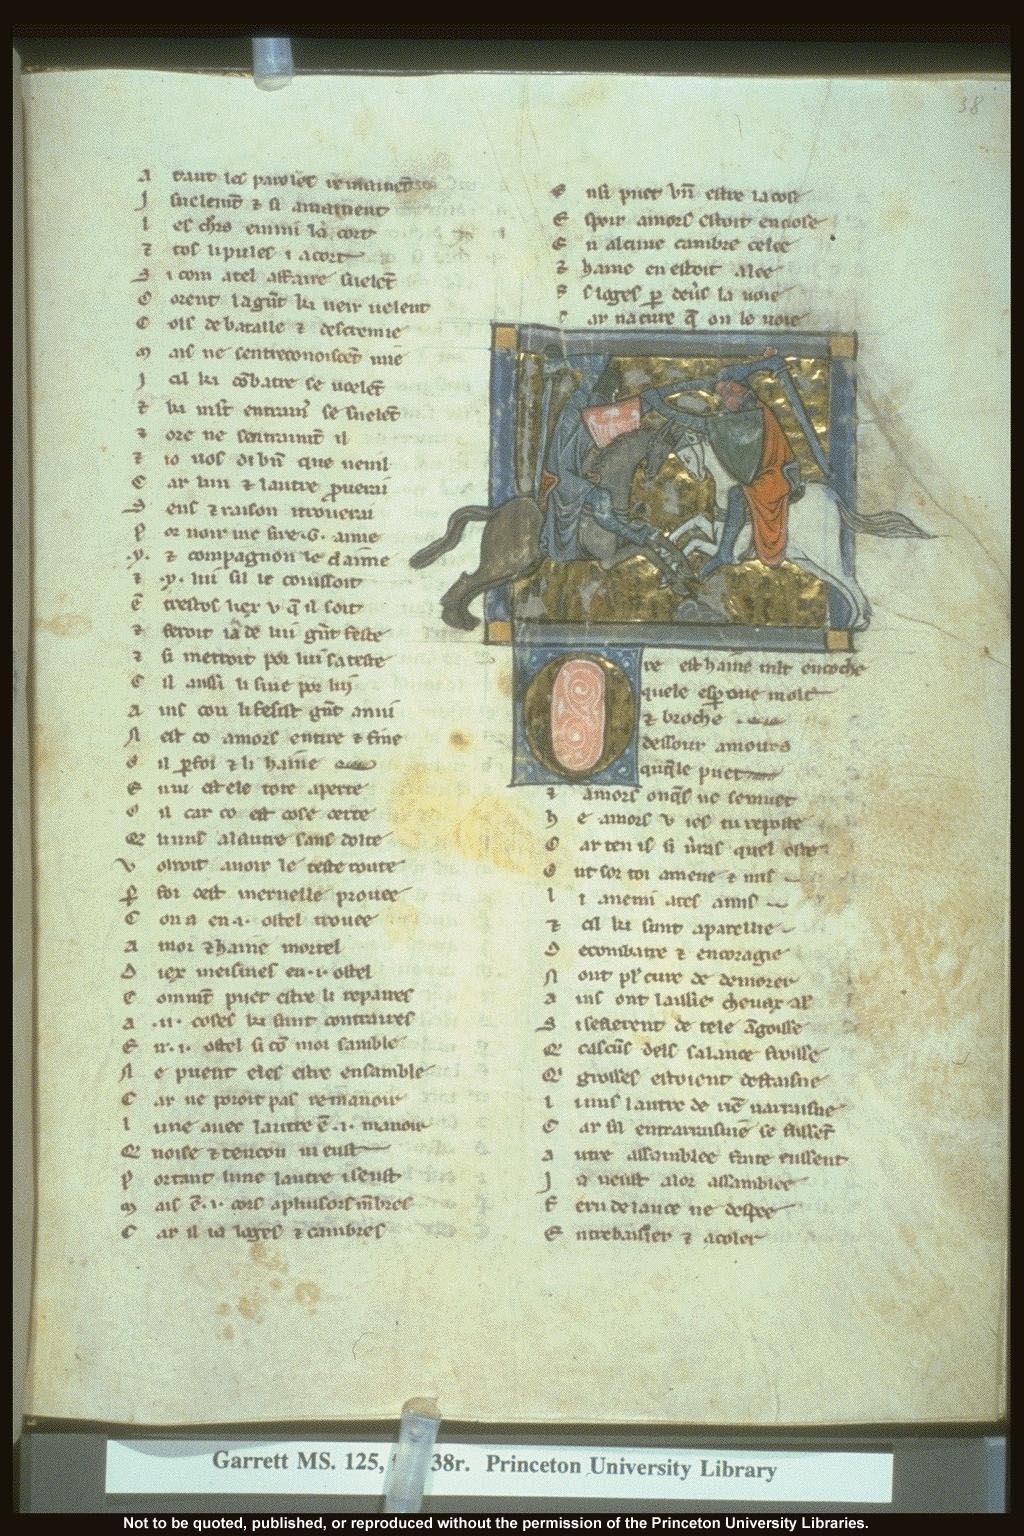 38
A tant les paroles remainent
J
l es chrs enmi la cort
⁊ tos li pules i acort
S i com a tel affaire suelēt
C orent la gūt ki veir uelent
C ols de bataille ⁊ descremie
M ais ne sentreconoiscēt mie
J cil ki cōbatre se uoelēt
⁊ ki mlt entramer se suelēt
⁊ ore ne sentraimēt il
⁊ io uos di bn̄ que nenil
C ar lun ⁊ lautre prouerai
S ens ⁊ raison i trouerai
P or noir me sire .G. aime
.y. ⁊ compagnon le claime
⁊ .y. lui sil le conissoit
ē trestos liex v q̄ il soit
⁊ feroit ia de lui gūt feste
⁊ si metroit por lui sa teste
C il ausi li siue por lui
A ins con li fesist gūt anui
N est co amors entire ⁊ fine
O il par foi ⁊ li haine
E nui est ele tote aperte
O il car co est cose certe
Q li uns a lautre sans dolte
V olroit auoir le teste route
P foi cest meruelle prouee
C on a en .i. ostel trouee
A mor ⁊ haine mortel
D iex meismes en .i. ostel
C omm̄t puet estre li repaires
A .ii. coses ki sunt contraires
E n .i. ostel si cō moi samble
N e puent eles estre ensamble
C ar ne poroit pas remanoir
l une auec lautre ē .i. manoir
Q noise ⁊ tencon ni eust
P ortant lune lautre i seust
M ais ē .i. cors a plusors mbres
C ar il i a loges ⁊ cambres
E nsi puet bn̄ estre la cose
E spoir amors estoit enclose
E n alcune cambre celee
⁊ haine en estoit alee
S loges p̱ deuers la uoie
C ar na cure q̄ on le voie
Ore est haine mlt en coche
quele esperone molt
⁊ broche
desour amours
quele puet
⁊ amors onqs ne se muet
H e amors v ies tu reposte
C
O ut sor toi amene ⁊ mis
l i anemi a tes amis
⁊ cil ki sunt aparellie
D e combatre ⁊ encoragie
N ont pl' cure de demorer
A ins ont laissie cheuax al'
S i sesfierent de tele āgoisse
Q cascūs dels sa lance froisse
Q grosses estoient de fraisne
l uns lautre de riē naraisne
C ar sil entraraisnie se fussēt
A utre assamblee faite eussent
J a neust a lor assamblee
F eru de lance ne despee
E ntrebaisier ⁊ acoler
Garrett MS. 125, 38r. Princeton University Library
Not to be quoted, published, or reproduced without the permission of the Princeton University Libraries.